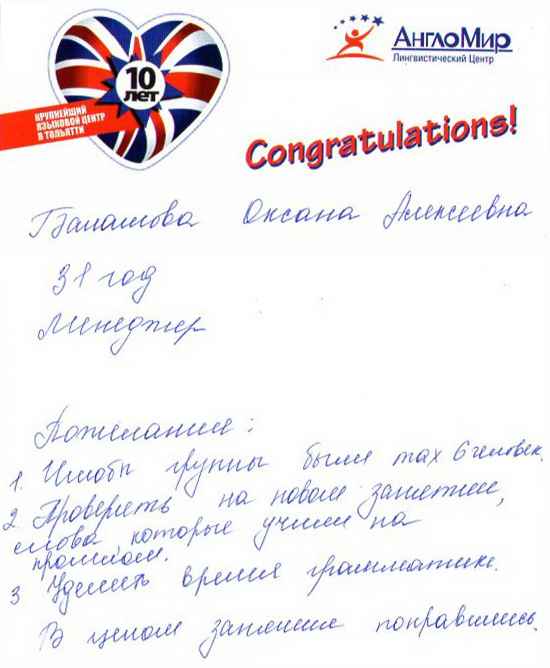 10
лет
КРУПНЕЙШИЙ
ЯЗЫКОВОЙ ЦЕНТР
В ТОЛЬЯТТИ
АнглоМир
Лингвистический Центр
Congratulations!
Балашова Оксана Алексеевна
31 год
Менеджер
Пожелания:
1. Чтобы группы были max 6 человек.
2. Проверять на новом занятии,
слова, которые учили на
прошлом.
3 Уделить время грамматике.
В целом занятие понравились.